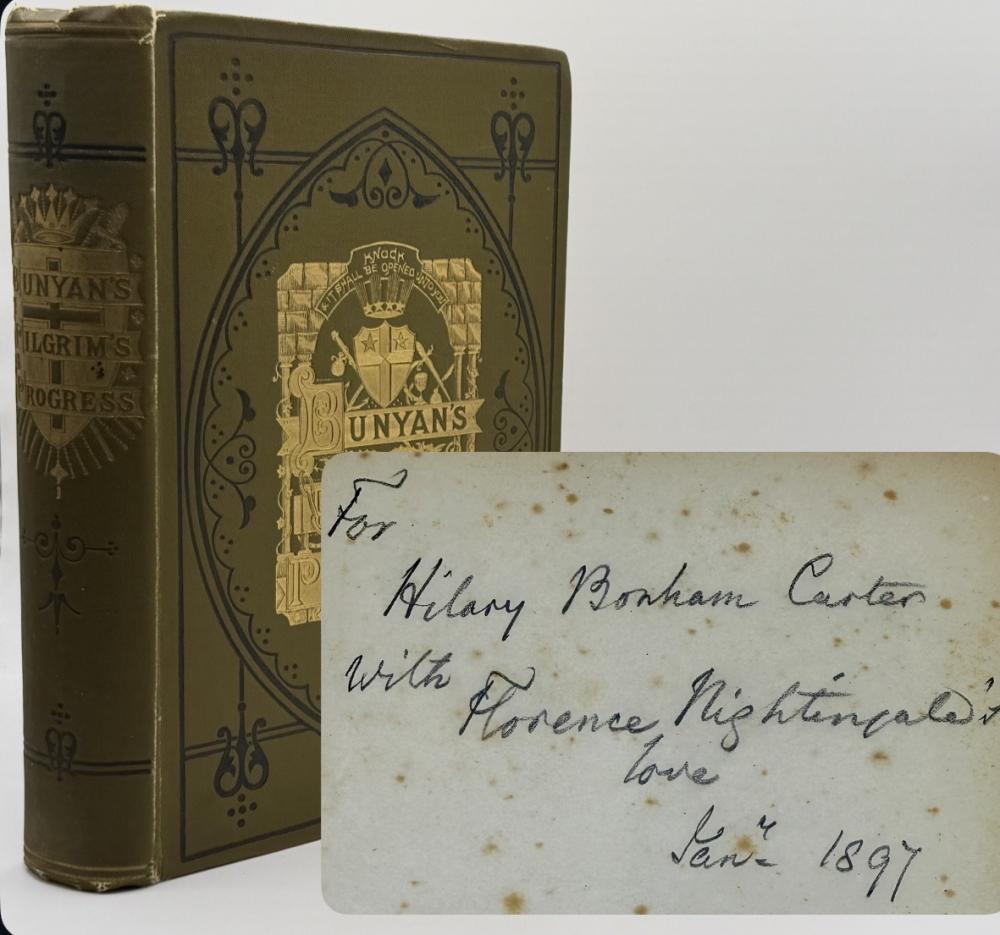 BUNYAN'S
PILGRIM'S
PROGRESS
KNOCK
& IT SHALL BE OPENED UNTO YOU
BUNYAN'S
P
For
Hilary Bonham Carter
with
Florence Nightingale's
love
Jan^y 1897